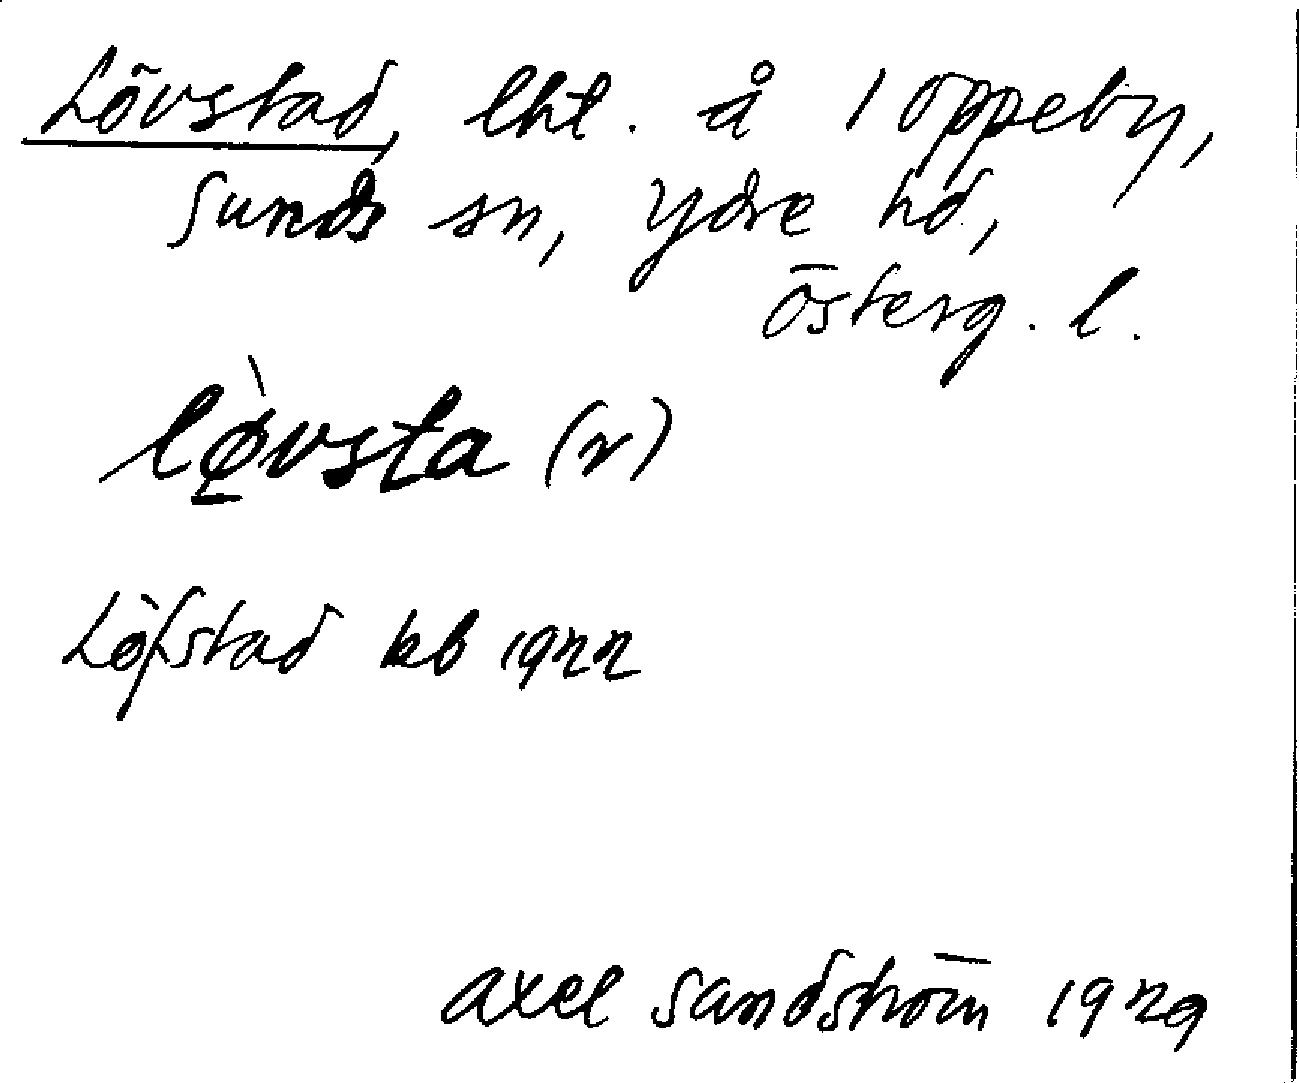 Lövstad, lht. å 1 Oppeby,
Sunds sn, Ydre hd,
Österg. l.
lø̀vsta (r)
Löfstad kb 1922
Axel Sandström 1929